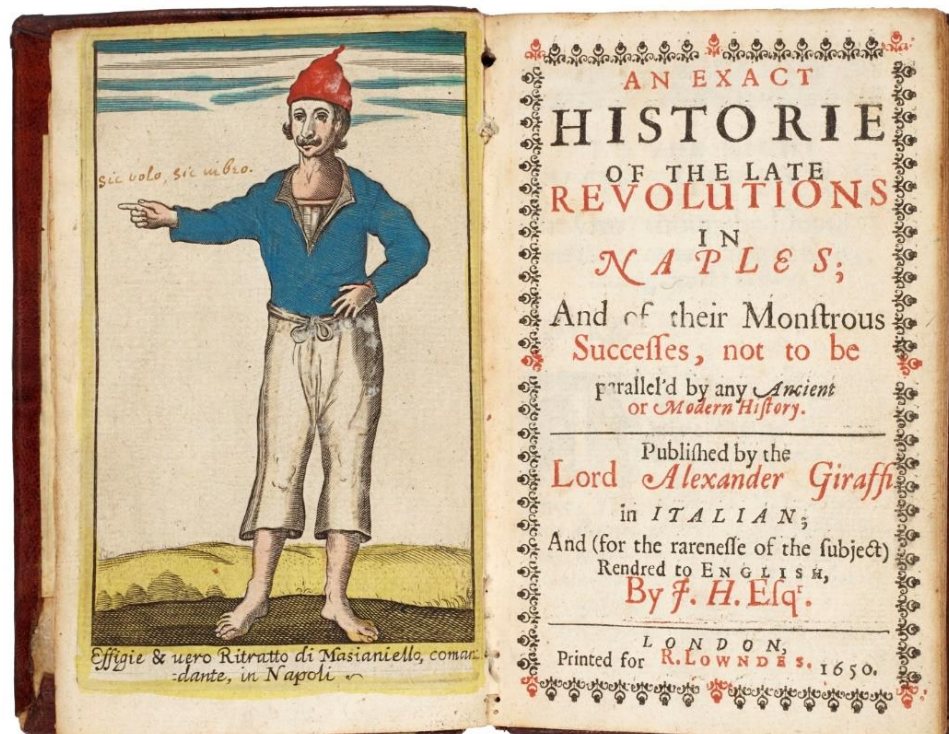 sic volo, sic iubeo.
Effigie & uero Ritratto di Masianiello, coman:
dante, in Napoli
AN EXACT
HISTORIE
OF THE LATE
REVOLUTIONS
IN
NAPLES;
And of their Monſtrous
Succeſſes, not to be
parallel'd by any Ancient
or Modern Hiſtory.
Publiſhed by the
Lord Alexander Giraffi
in ITALIAN;
And (for the rareneſſe of the ſubject)
Rendred to ENGLISH,
By J. H. Eſqr.
LONDON,
Printed for R. LOWNDES. 1650.